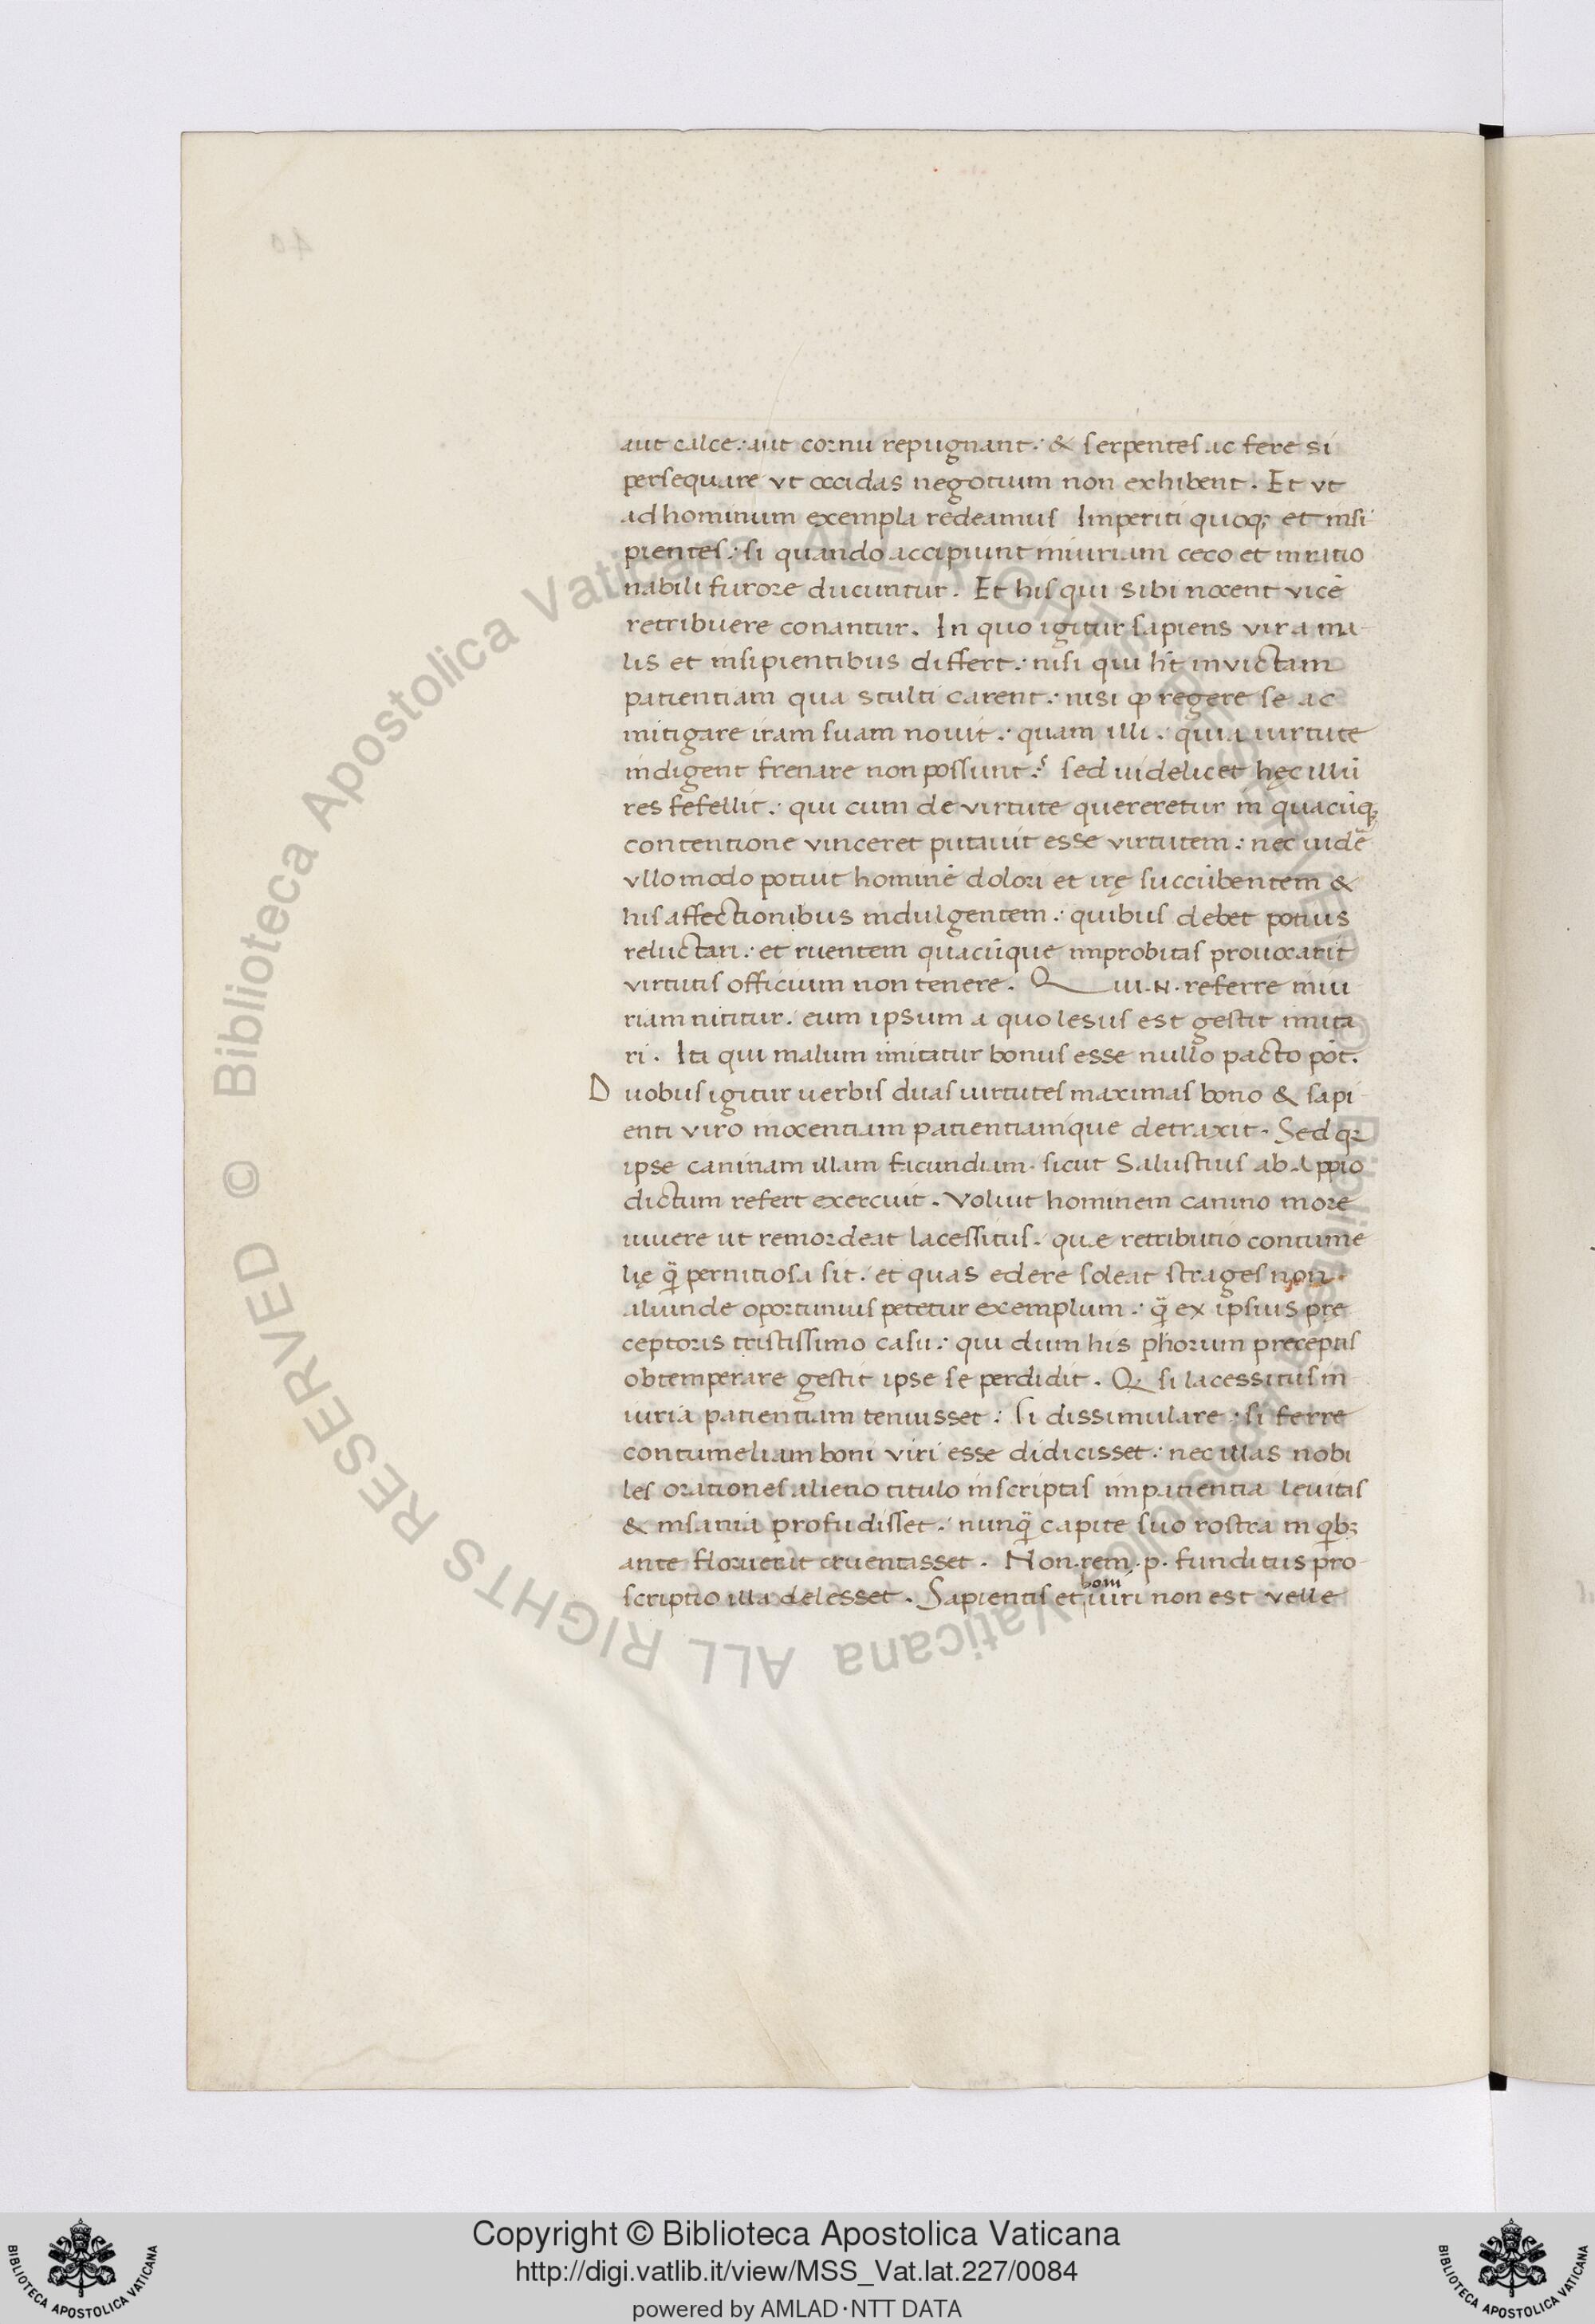 aut calce: aut cornu repugnant: & serpentes ac fere si
persequare vt occidas negotium non exhibent. Et vt
ad hominum exempla redeamus Imperiti quoq; et insi
pientes: si quando accipiunt iniuriam ceco et inratio
nabili furore ducuntur. Et his qui sibi nocent vicē
retribuere conantur. In quo igitur sapiens vir a ma-
lis et insipientibus differt: nisi qui h̄t invictam
patientiam qua stulti carent: nisi ꝙ regere se ac
mitigare iram suam nouit: quam illi: quia uirtute
indigent frenare non possunt? sed uidelicet hęc illū
res fefellit: qui cum de virtute quereretur in quacūq;
contentione vinceret putauit esse virtutem: nec uidē
vllo modo potuit hominē dolori et irę succūbentem &
his affectionibus indulgentem: quibus debet potius
reluctari: et ruentem quacūque improbitas prouocarit
virtutis officium non tenere. Qui.N. referre iniu
riam nititur. eum ipsum a quo lesus est gestit imita
ri. Ita qui malum imitatur bonus esse nullo pacto pōt.
Duobus igitur uerbis duas uirtutes maximas bono & sapi
enti viro inocentiam patientiamque detraxit. Sed q;
ipse caninam illam facundiam. sicut Salustius ab Appio
dictum refert exercuit. Voluit hominem canino more
uiuere ut remordeat lacessitus. quae retributio contume
lię q̄ pernitiosa sit. et quas edere soleat strages non
aliunde oportunius petetur exemplum: q̄ ex ipsius pre
ceptoris tristissimo casu: qui dum his phorum preceptis
obtemperare gestit ipse se perdidit. Q si lacessitus in
iuria patientiam tenuisset: si dissimulare: si ferre
contumeliam boni viri esse didicisset: nec illas nobi
les orationes alieno titulo inscriptas impatientia leuitas
& insania profudisset. nunq̄ capite suo rostra in qb;
ante floruerit cruentasset. Non.rem.p. funditus pro-
scriptio illa delesset. Sapientis et boni uiri non est velle
Copyright © Biblioteca Apostolica Vaticana
http://digi.vatlib.it/view/MSS_Vat.lat.227/0084
powered by AMLAD·NTT DATA
BIBLIOTECA APOSTOLICA VATICANA
BIBLIOTECA APOSTOLICA VATICANA
© Biblioteca Apostolica Vaticana ALL RIGHTS RESERVED © Biblioteca Apostolica Vaticana ALL RIGHTS RESERVED